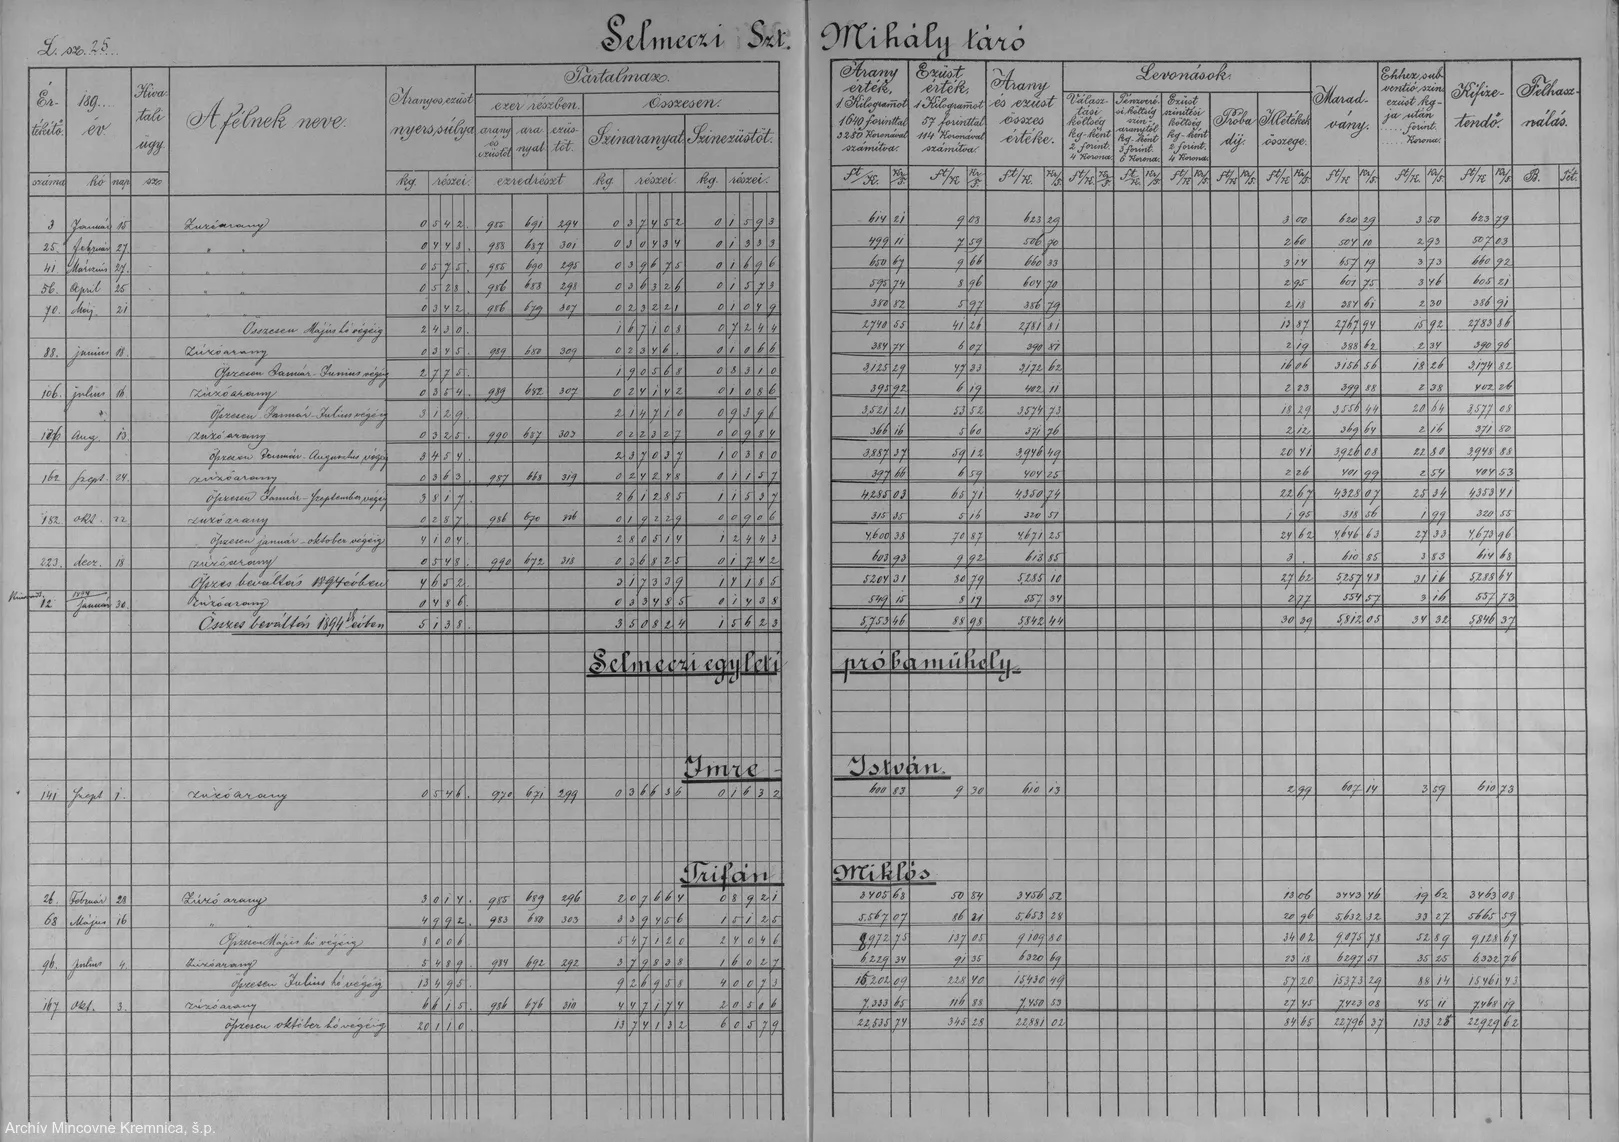 L. sz. 25.
Selmeczi Szt. Mihály táró
Ér-tékítő száma
189... év hó nap
Hiva-tali ügy. sz.
A félnek neve.
Aranyos ezüst nyers súlya kg. részei.
Tartalmaz.
ezer részben.
arany és ezüstöt
ara nyat
ezüs-töt.
ezredrészt
Összesen.
Színaranyat kg. részei.
Színezüstöt. kg. részei.
Arany érték, 1 Kilogramot 1640 forinttal 3280 Koronával számítva.
Ezüst érték, 1 Kilogramot 57 forinttal 114 Koronával számítva.
Arany és ezüst összes értéke.
Levonások.
Válasz-tási költség kg-ként 2 forint. 4 Korona.
Ezüst színítési költség kg-ként 2 forint. 4 Korona.
Próba díj.
Mérték összege.
Marad-vány.
Kifize-tendő.
Felhasz-nálás.
3 Január 15 Zúzóarany 0542. 985 691 294 037452 01593 614 21 9 03 623 29 3 00 620 29 3 50 623 79
25. Február 27. " " 0443. 988 687 301 030434 01333 499 11 7 59 506 70 2 60 504 10 2 93 507 03
41. Március 27. " " 0575. 985 690 295 039675 01696 650 67 9 66 660 33 3 14 657 19 3 73 660 92
56. April 25 " " 0523. 986 688 298 036326 01573 595 74 8 96 604 70 2 95 601 75 3 46 605 21
70. Máj. 21 0342. 986 679 307 023221 01049 380 82 5 97 386 79 2 18 384 61 2 30 386 91
Összesen Május hó végéig 2430. 167108 07244 2740 55 41 26 2781 81 13 87 2767 94 15 92 2783 86
88. június 18. Zúzóarany 0345. 989 680 309 02346. 01066 384 74 6 07 390 81 2 19 388 62 2 34 390 96
Öszesen Január-Junius végéig 2775. 190568 03310 3125 29 47 33 3172 62 16 06 3156 56 18 26 3174 82
106. július 16 zúzóarany 0354. 989 682 307 024142 01086 395 92 6 19 402 11 2 23 399 88 2 38 402 26
Öszesen Január-Julius végéig 3129. 214710 09396 3521 21 53 52 3574 73 18 29 3556 44 20 64 3577 08
126 Aug. 13 zúzóarany 0325. 990 687 303 022327 00984 366 16 5 60 371 76 2 12 369 64 2 16 371 80
Öszesen Január-Augusztus végéig 3454 237037 10380 3887 37 59 12 3946 49 20 41 3926 08 22 80 3948 88
162 Szept. 24. zúzóarany 0363. 987 668 319 024248 01157 397 66 6 59 404 25 2 26 401 99 2 54 404 53
Öszesen Január-Szeptember végéig 3817. 261285 11537 4285 03 65 71 4350 74 22 67 4328 07 25 34 4353 41
182. okt. 22 zúzóarany 0287. 986 670 316 019229 00906 315 35 5 16 320 51 1 95 318 56 1 99 320 55
Öszesen január-október végéig 4104. 280514 12443 4600 38 70 87 4671 25 24 62 4646 63 27 33 4673 96
223. decz. 18 zúzóarany 0548. 990 672 318 036825 01742 603 93 9 92 613 85 3 . 610 85 3 83 614 68
Öszes beváltás 1894 évben 4652. 317339 14185 5204 31 80 79 5285 10 27 62 5257 48 31 16 5288 64
12 Január 30. Zúzóarany 0486. 033485 01438 549 15 8 19 557 34 2 77 554 57 3 16 557 73
Összes beváltás 1894 évben 5138. 350824 15623 5753 46 88 98 5842 44 30 39 5812 05 34 32 5846 37
Selmeczi egyleti próbaműhely.
Imre - István.
141 Szept 1. zúzóarany 0546. 970 671 299 036636 01632 600 83 9 30 610 13 2 99 607 14 3 59 610 73
Trifán Miklós
26. Február 28 Zúzó arany 3014. 985 689 296 207664 08921 3405 68 50 84 3456 52 13 06 3443 46 19 62 3463 08
68 Május 16 " " 4992. 983 680 303 339456 15125 5567 07 86 21 5653 28 20 96 5632 32 33 27 5665 59
Öszesen Május hó végéig 8006. 547120 24046 8972 75 137 05 9109 80 34 02 9075 78 52 89 9128 67
96. július 4. Zúzóarany 5489. 984 692 292 379838 16027 6229 34 91 35 6320 69 23 18 6297 51 35 25 6332 76
Öszesen Julius hó végéig 13495. 926958 40073 15202 09 228 40 15430 49 57 20 15373 29 88 14 15461 43
167 Okt. 3. zúzóarany 6615. 986 676 310 447174 20506 7333 65 116 88 7450 53 27 45 7423 08 45 11 7468 19
Öszesen október hó végéig 20110. 1374132 60579 22535 74 345 28 22881 02 84 65 22796 37 133 25 22929 62
Archív Mincovne Kremnica, š.p.